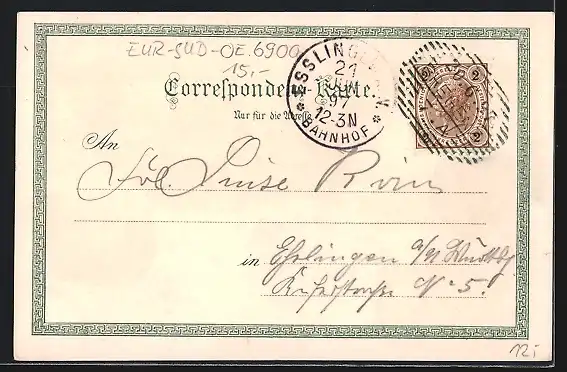 EUR-SÜD-OE.6900
15,-
Correspondenz-Karte.
Nur für die Adresse.
ESSLINGEN
21
JUN
97
12-3N
BAHNHOF
2
2
An
Frl. Luise
in Eßlingen a/N Württbg
N° 5.
12,-